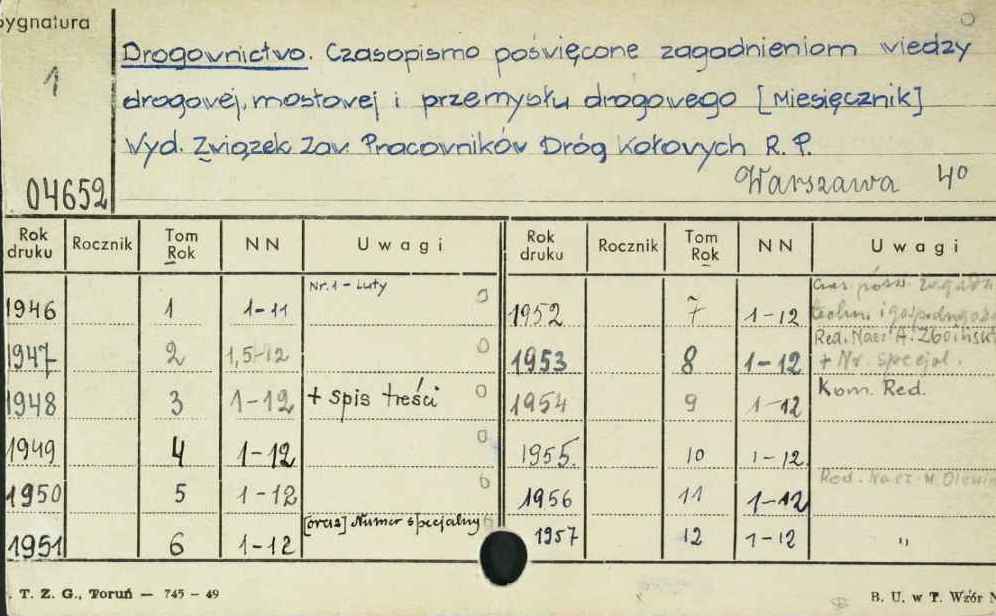 Sygnatura
1
Drogownictwo. Czasopismo poświęcone zagadnieniom wiedzy
drogowej, mostowej i przemysłu drogowego [Miesięcznik]
Wyd. Związek Zaw. Pracowników Dróg Kołowych R. P.
Warszawa 4°
04652
Rok druku Rocznik Tom Rok NN Uwagi Rok druku Rocznik Tom Rok NN Uwagi
1946 1 1-11 Nr. 1 - Luty 0
1947 2 1,5-12 0
1948 3 1-12 + spis treści 0
1949 4 1-12 0
1950 5 1-12 0
1951 6 1-12 [oraz] Numer specjalny
1952 7 1-12
1953 8 1-12 Red. Nacz. A. Zboińsk + Nr. specjal.
1954 9 1-12 Kom. Red.
1955. 10 1-12.
1956 11 1-12 Red. Nacz. W.
1957 12 1-12 „
. T. Z. G., Toruń — 745 - 49
B. U. w T. Wzór N